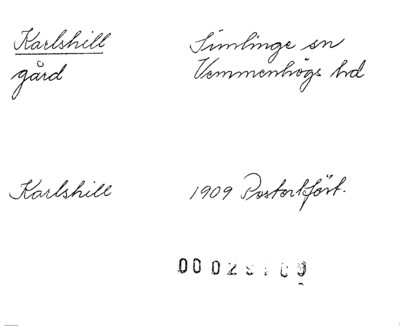 Karlshill
gård
Simlinge sn
Vemmenhögs hd
Karlshill
1909 Postortsfört.